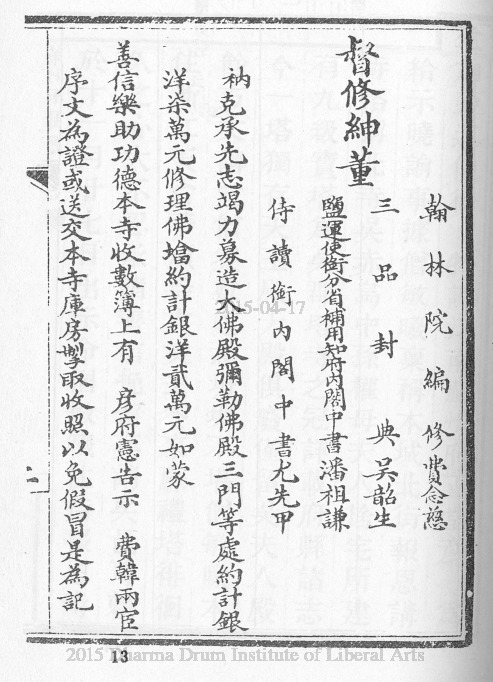 督修紳董
翰林院編修費念慈
三品封典吳韶生
鹽運使銜分省補用知府內閣中書潘祖謙
侍讀銜內閣中書尤先甲
衲克承先志竭力募造大佛殿彌勒佛殿三門等處約計銀
洋柒萬元修理佛塔約計銀洋貳萬元如蒙
善信樂助功德本寺收數簿上有 彥府憲告示 費韓兩宦
序文為證或送交本寺庫房掣取收照以免假冒是為記
2015-04-17
13
2015 Dharma Drum Institute of Liberal Arts